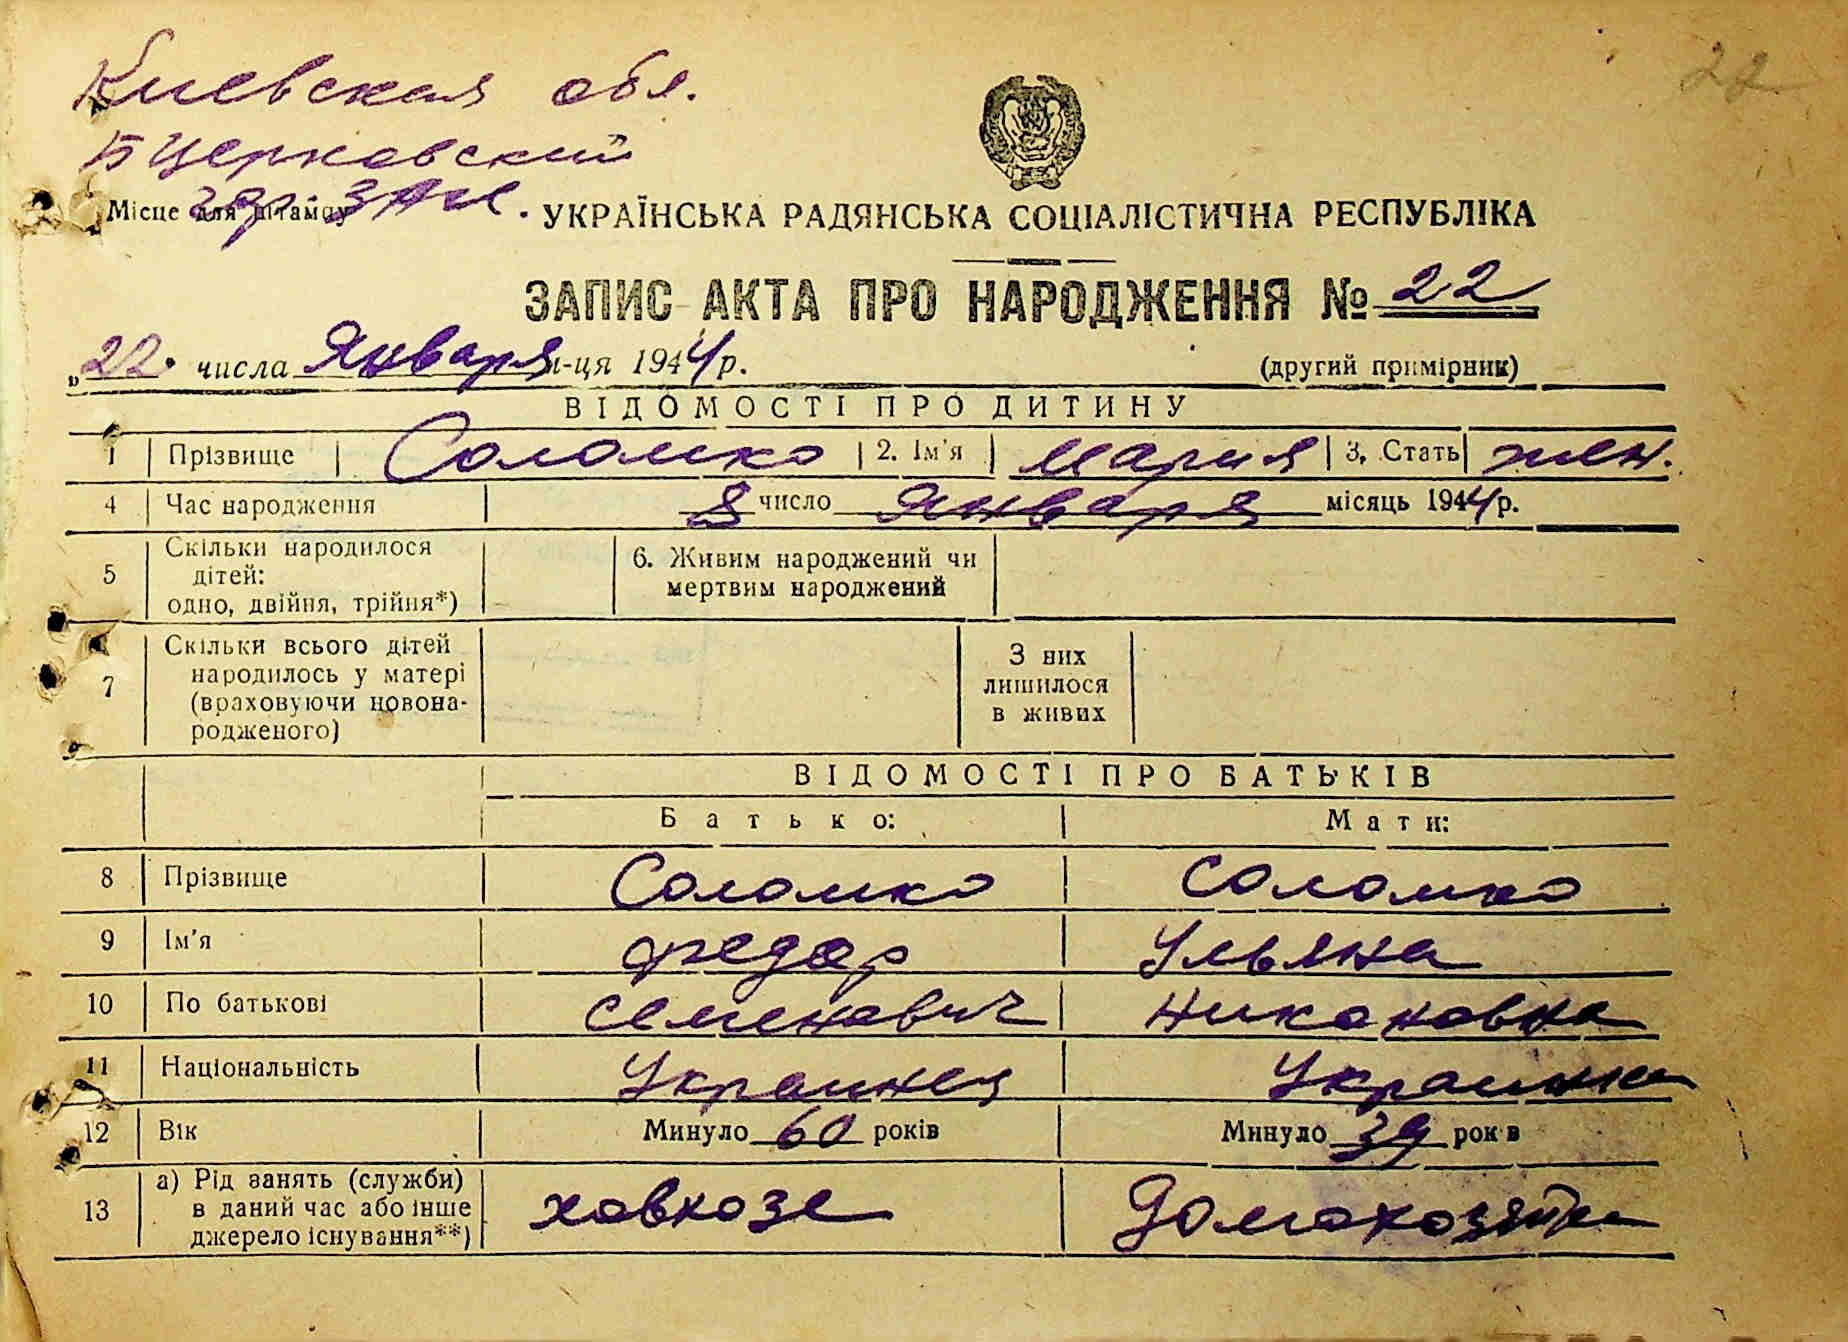 22
Киевская обл.
БЦерковский
гор. ЗАГС.
Місце для штампу
УКРАЇНСЬКА РАДЯНСЬКА СОЦІАЛІСТИЧНА РЕСПУБЛІКА
ЗАПИС АКТА ПРО НАРОДЖЕННЯ № 22
„22" числа Января м-ця 1944 р. (другий примірник)
ВІДОМОСТІ ПРО ДИТИНУ
1 Прізвище Соломко 2. Ім'я Мария 3. Стать жен.
4 Час народження 8 число Января місяць 1944 р.
5 Скільки народилося дітей: одно, двійня, трійня*) 6. Живим народжений чи мертвим народжений
7 Скільки всього дітей народилось у матері (враховуючи новонародженого) З них лишилося в живих
ВІДОМОСТІ ПРО БАТЬКІВ
Батько: Мати:
8 Прізвище Соломко Соломко
9 Ім'я Федор Ульяна
10 По батькові Семенович Никоновна
11 Національність Украинец Украинка
12 Вік Минуло 60 років Минуло 39 років
13 а) Рід занять (служби) в даний час або інше джерело існування**) ховхозе Домохозяйка